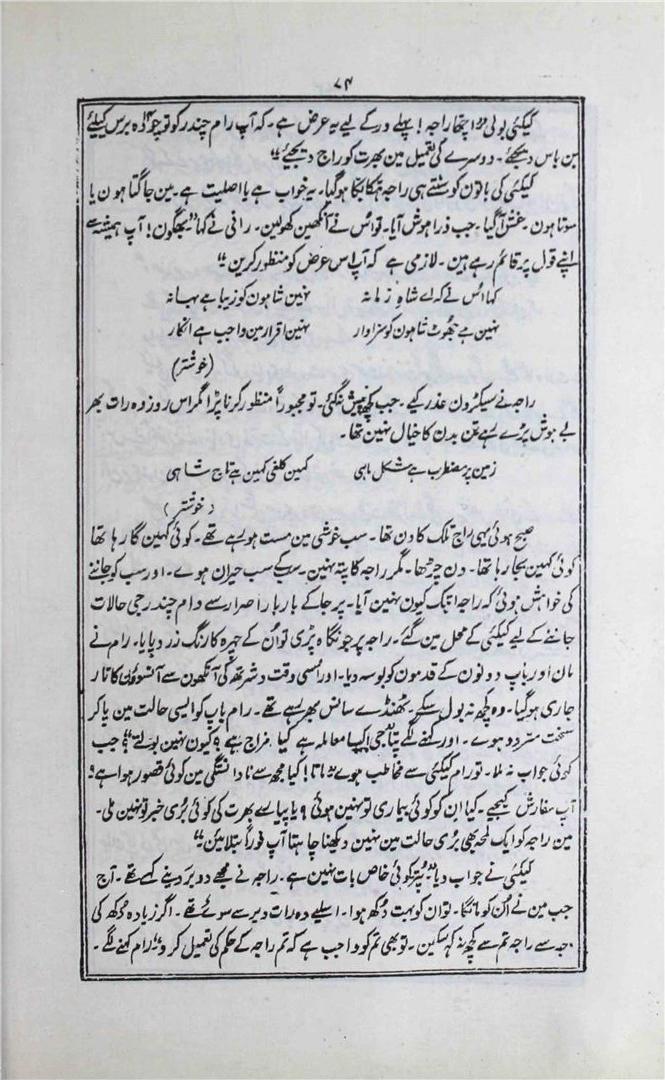 ۷۴
کیکئی بولی "اچھا راجہ! پہلے ور کے لیے یہ عرض ہے۔ کہ آپ رام چندر کو تو چودہ برس کیلئے
بن باس دیجئے۔ دوسرے کی تعمیل مین بھرت کو راج دیجئے"
کیکئی کی باتون کو سنتے ہی راجہ ہکا بکا ہوگیا۔ یہ خواب ہے یا اصلیت ہے۔ مین جاگتا ہون یا
سوتا ہون۔ غش آگیا۔ جب ذرا ہوش آیا۔ تو اُس نے آنکھین کھولین۔ رانی نے کہا "بھگون! آپ ہمیشہ سے
اپنے قول پر قائم رہے ہین۔ لازمی ہے کہ آپ اس عرض کو منظور کرین"
کہا اُس نے کہ اے شاہِ زمانہ نہین شاہون کو زیبا ہے بہانہ
نہین ہے جھوٹ شاہون کو سزاوار نہین اقرار مین واجب ہے انکار
(خوشتر)
راجہ نے سیکڑون عذر کیے۔ جب کچھ پیش نہ گئی۔ تو مجبوراً منظور کرنا پڑا مگر اس روز وہ رات بھر
بے ہوش پڑے رہے تن بدن کا خیال نہین تھا۔
زمین پر مضطرب ہے شکل ماہی کہین کلغی کہین ہے تاج شاہی
(خوشتر)
صبح ہوئی یہی راج تلک کا دن تھا۔ سب خوشی مین مست ہو رہے تھے۔ کوئی کہین گا رہا تھا
کوئی کہین بجا رہا تھا۔ دن چڑھا۔ مگر راجہ کا پتہ نہین۔ سب کے سب حیران ہوے۔ اور سب کو جاننے
کی خواہش ہوئی کہ راجہ ابتک کیون نہین آیا۔ پرجا کے بار بار اصرار سے رام چندر جی حالات
جاننے کے لیے کیکئی کے محل مین گئے۔ راجہ پر جو نگاہ پڑی تو اُن کے چہرہ کا رنگ زرد پایا۔ رام نے
مان اور باپ دونون کے قدمون کو بوسہ دیا۔ اور اُسی وقت دشرتھ کی آنکھون سے آنسوؤن کا تار
جاری ہوگیا۔ وہ کچھ نہ بول سکے۔ ٹھنڈے سانس بھر رہے تھے۔ رام باپ کو ایسی حالت مین پا کر
سخت متردد ہوے۔ اور کہنے لگے پتا جی! کیسا معاملہ ہے کیا مزاج ہے؟ کیون نہین بولتے"؟ جب
کوئی جواب نہ ملا۔ تو رام کیکئی سے مخاطب ہوے "ماتا! کیا مجھ سے نادانستگی مین کوئی قصور ہوا ہے؟
آپ سفارش کیجیے۔ کیا ان کو کوئی بیماری تو نہین ہوئی؟ یا پیارے بھرت کی کوئی بُری خبر تو نہین ملی۔
مین راجہ کو ایک لمحہ بھی بُری حالت مین نہین دیکھنا چاہتا آپ فوراً بتلائین"
کیکئی نے جواب دیا "پُتر کوئی خاص بات نہین ہے۔ راجہ نے مجھے دو بر دینے کہے تھے۔ آج
جب مین نے اُن کو مانگا۔ تو ان کو بہت دُکھ ہوا۔ اسلیے وہ رات دیر سے سوئے تھے۔ اگر زیادہ دُکھ کی
وجہ سے راجہ تم سے کچھ نہ کہہ سکین۔ تو بھی تم کو واجب ہے کہ تم راجہ کے حکم کی تعمیل کرو" رام کہنے لگے۔